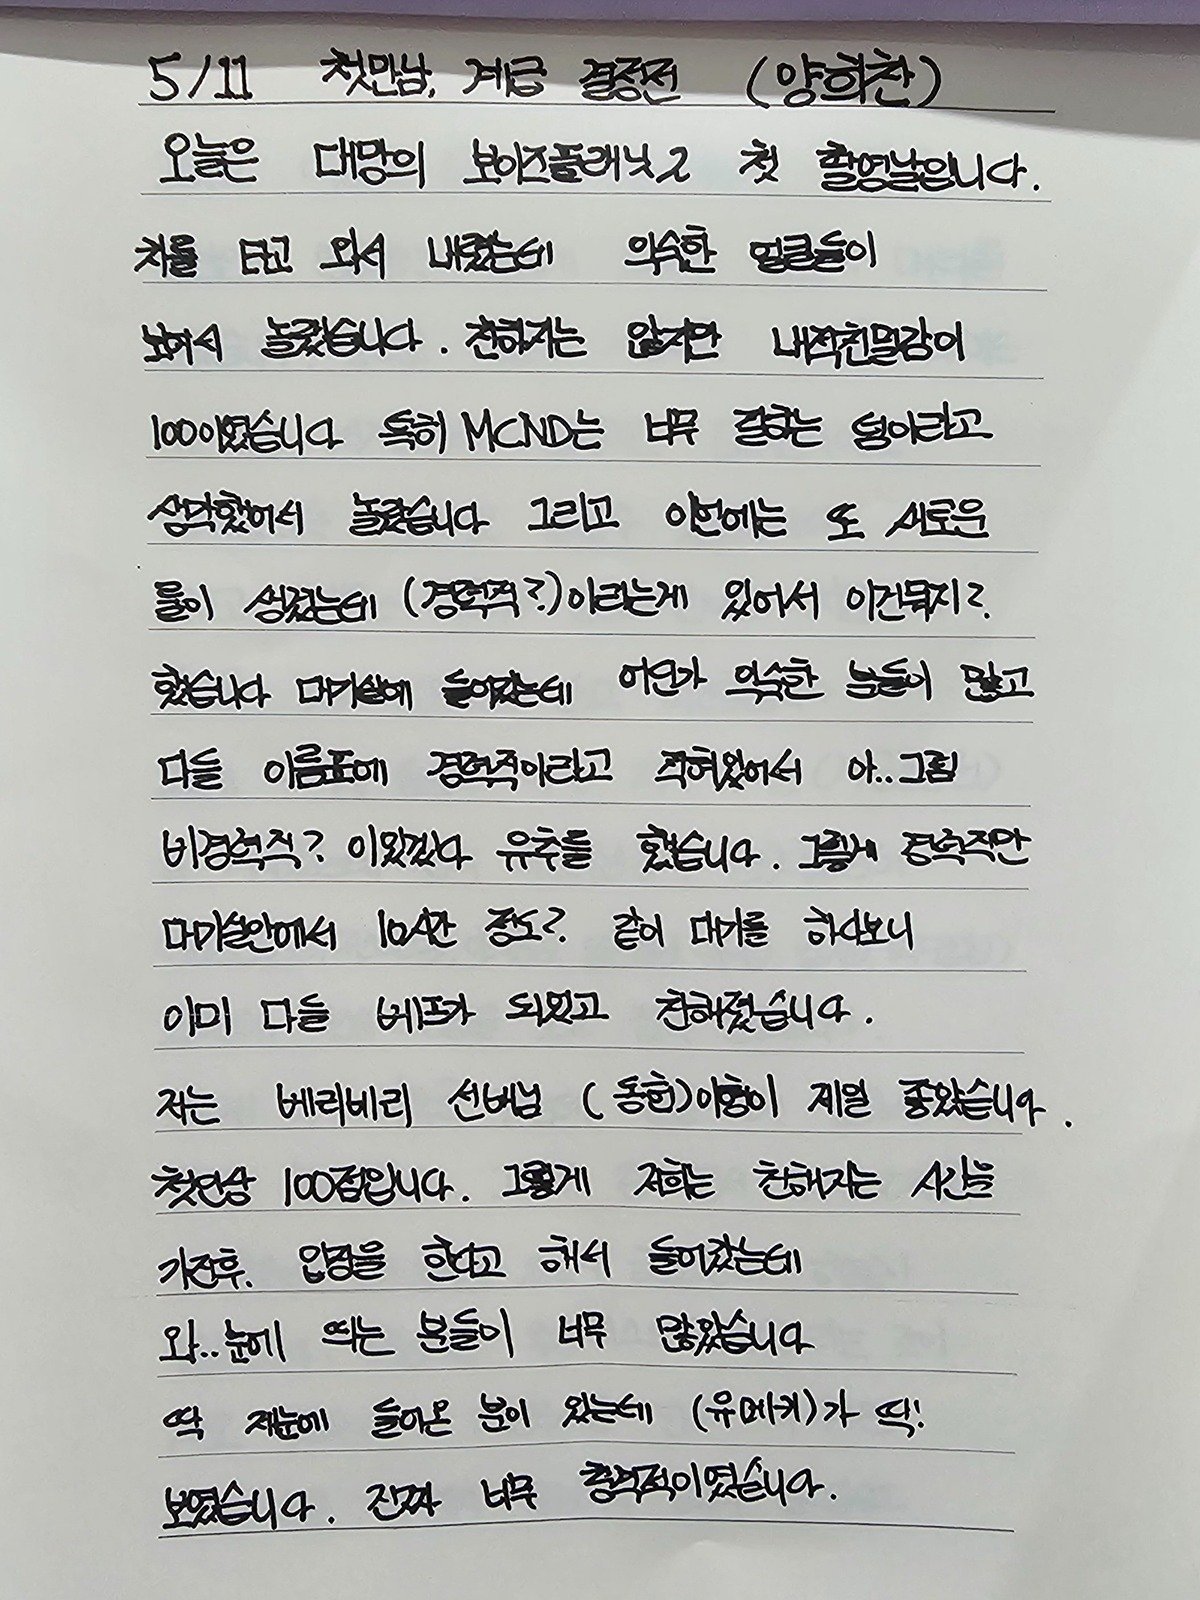 5/11 첫만남, 계급 결정전 (양희찬)
오늘은 대망의 보이즈플래닛2 첫 촬영날입니다.
차를 타고 와서 내렸는데 익숙한 얼굴들이
보여서 놀랐습니다. 친하지는 않지만 내적친밀감이
100이였습니다 특히 MCND는 너무 잘하는 팀이라고
생각했어서 놀랐습니다 그리고 이번에는 또 새로운
룰이 생겼는데 (경력직?)이라는게 있어서 이건뭐지?
했습니다 대기실에 들어갔는데 어딘가 익숙한 분들이 많고
다들 이름표에 경력직이라고 적혀있어서 아..그럼
비경력직? 이있겠다 유추를 했습니다. 그렇게 경력직만
대기실안에서 10시간 정도? 같이 대기를 하다보니
이미 다들 베프가 되있고 친해졌습니다.
저는 베리베리 선배님 (동헌)이형이 제일 좋았습니다.
첫인상 100점입니다. 그렇게 저희는 친해지는 시간을
가진후. 입장을 한다고 해서 들어갔는데
와..눈에 띄는 분들이 너무 많았습니다
딱 제눈에 들어온 분이 있는데 (유메키)가 딱!
보였습니다. 진짜 너무 충격적이였습니다.